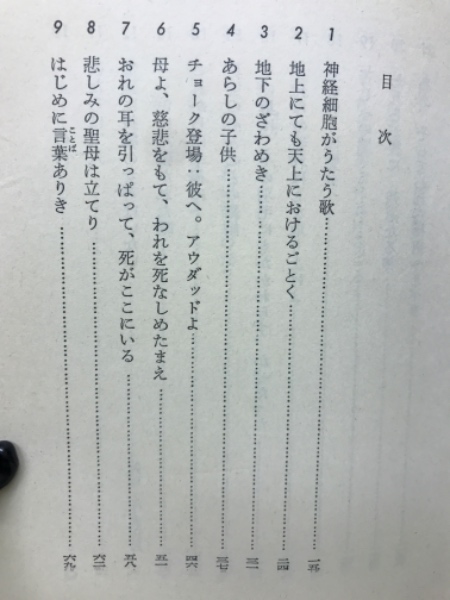 目次
1 神経細胞がうたう歌……一五
2 地上にても天上におけるごとく……二四
3 地下のざわめき……三一
4 あらしの子供……三七
5 チョーク登場：彼へ。アウダッドよ……四六
6 母よ、慈悲をもて、われを死なしめたまえ……五一
7 おれの耳を引っぱって、死がここにいる……五八
8 悲しみの聖母は立てり……六二
9 はじめに言葉ありき……六九
ことば